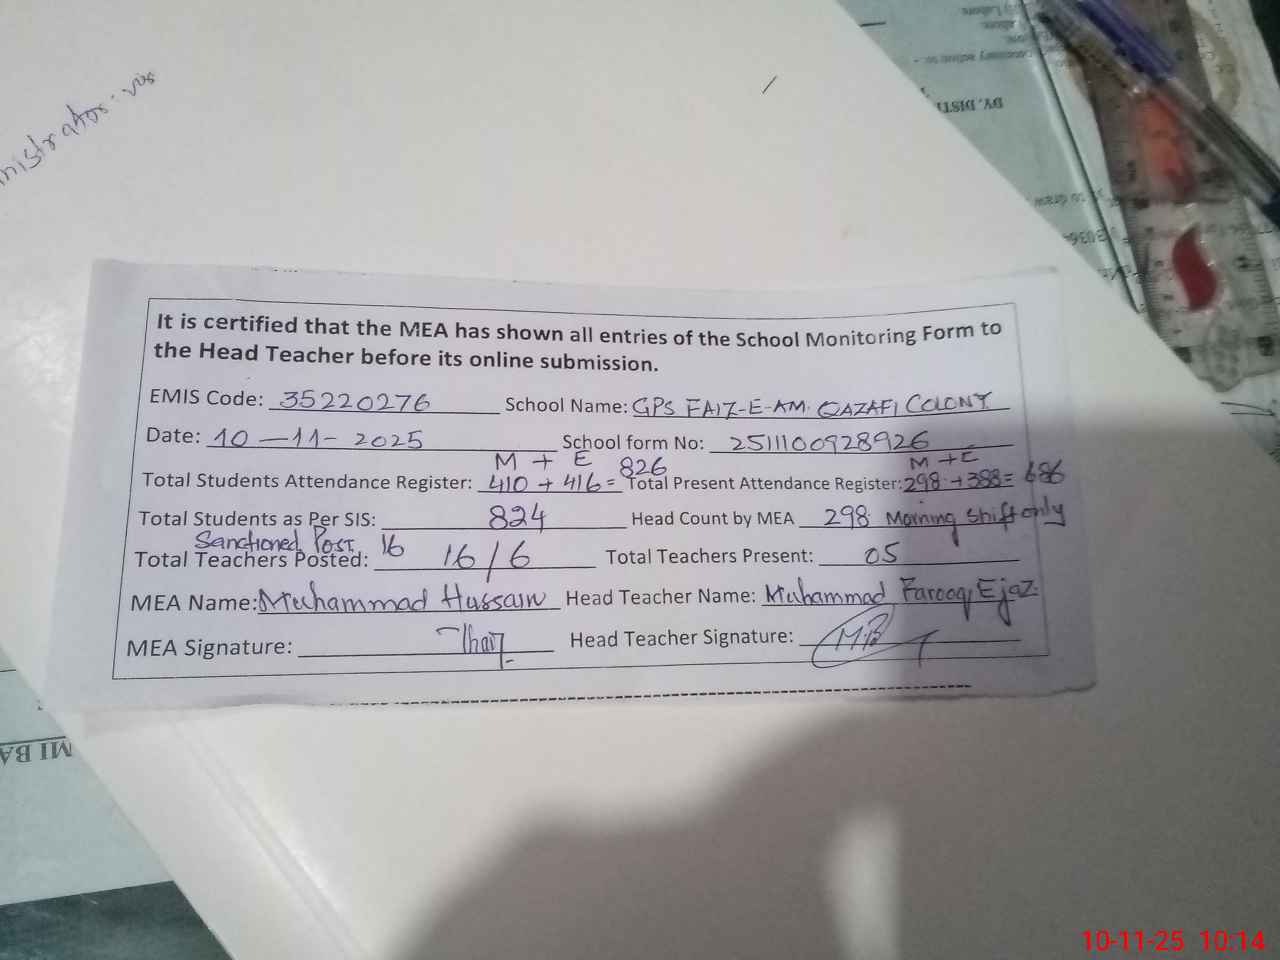 nistrator: vis
DY. DISTT
It is certified that the MEA has shown all entries of the School Monitoring Form to
the Head Teacher before its online submission.
EMIS Code: 35220276 School Name: GPS FAIZ-E-AM. QAZAFI COLONY
Date: 10-11-2025 School form No: 2511100928926
M + E 826 M + E
Total Students Attendance Register: 410 + 416 = Total Present Attendance Register: 298 + 388 = 686
Total Students as Per SIS: 824 Head Count by MEA 298 Morning Shift only
Sanctioned Post 16
Total Teachers Posted: 16/6 Total Teachers Present: 05
MEA Name: Muhammad Hussain Head Teacher Name: Muhammad Farooq Ejaz
MEA Signature: Head Teacher Signature:
MI BA
10-11-25 10:14